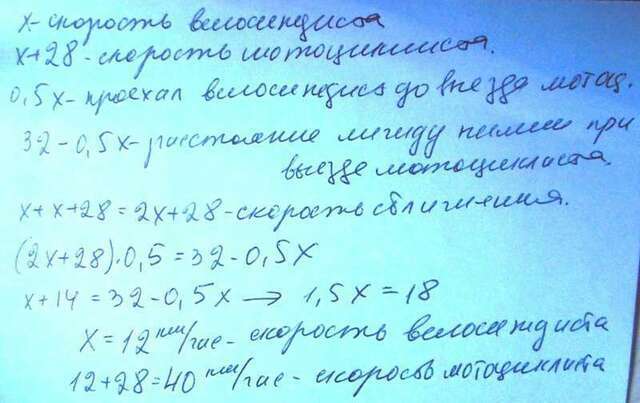 x - скорость велосипедиста
x+28 - скорость мотоциклиста.
0,5x - проехал велосипедист до выезда мотоц.
32 - 0,5x - расстояние между ними при
выезде мотоциклиста.
x + x + 28 = 2x + 28 - скорость сближения.
(2x+28)·0,5 = 32 - 0,5x
x + 14 = 32 - 0,5x → 1,5x = 18
x = 12 км/час - скорость велосипедиста
12 + 28 = 40 км/час - скорость мотоциклиста